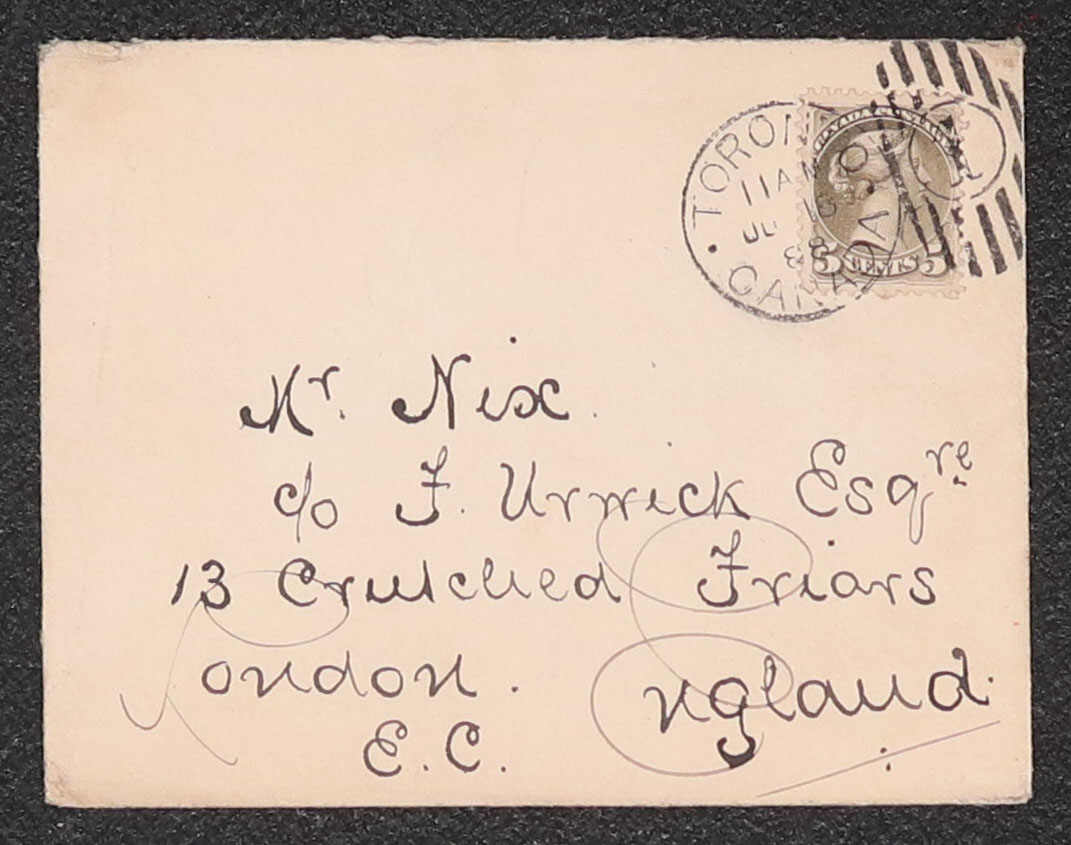 TORON
11 AM
JU 13
88
CANADA
CANADA POSTAGE
5 CENTS 5
Mr. Nix.
c/o F. Urwick Esqre.
13 Crutched Friars
London.
England.
E.C.